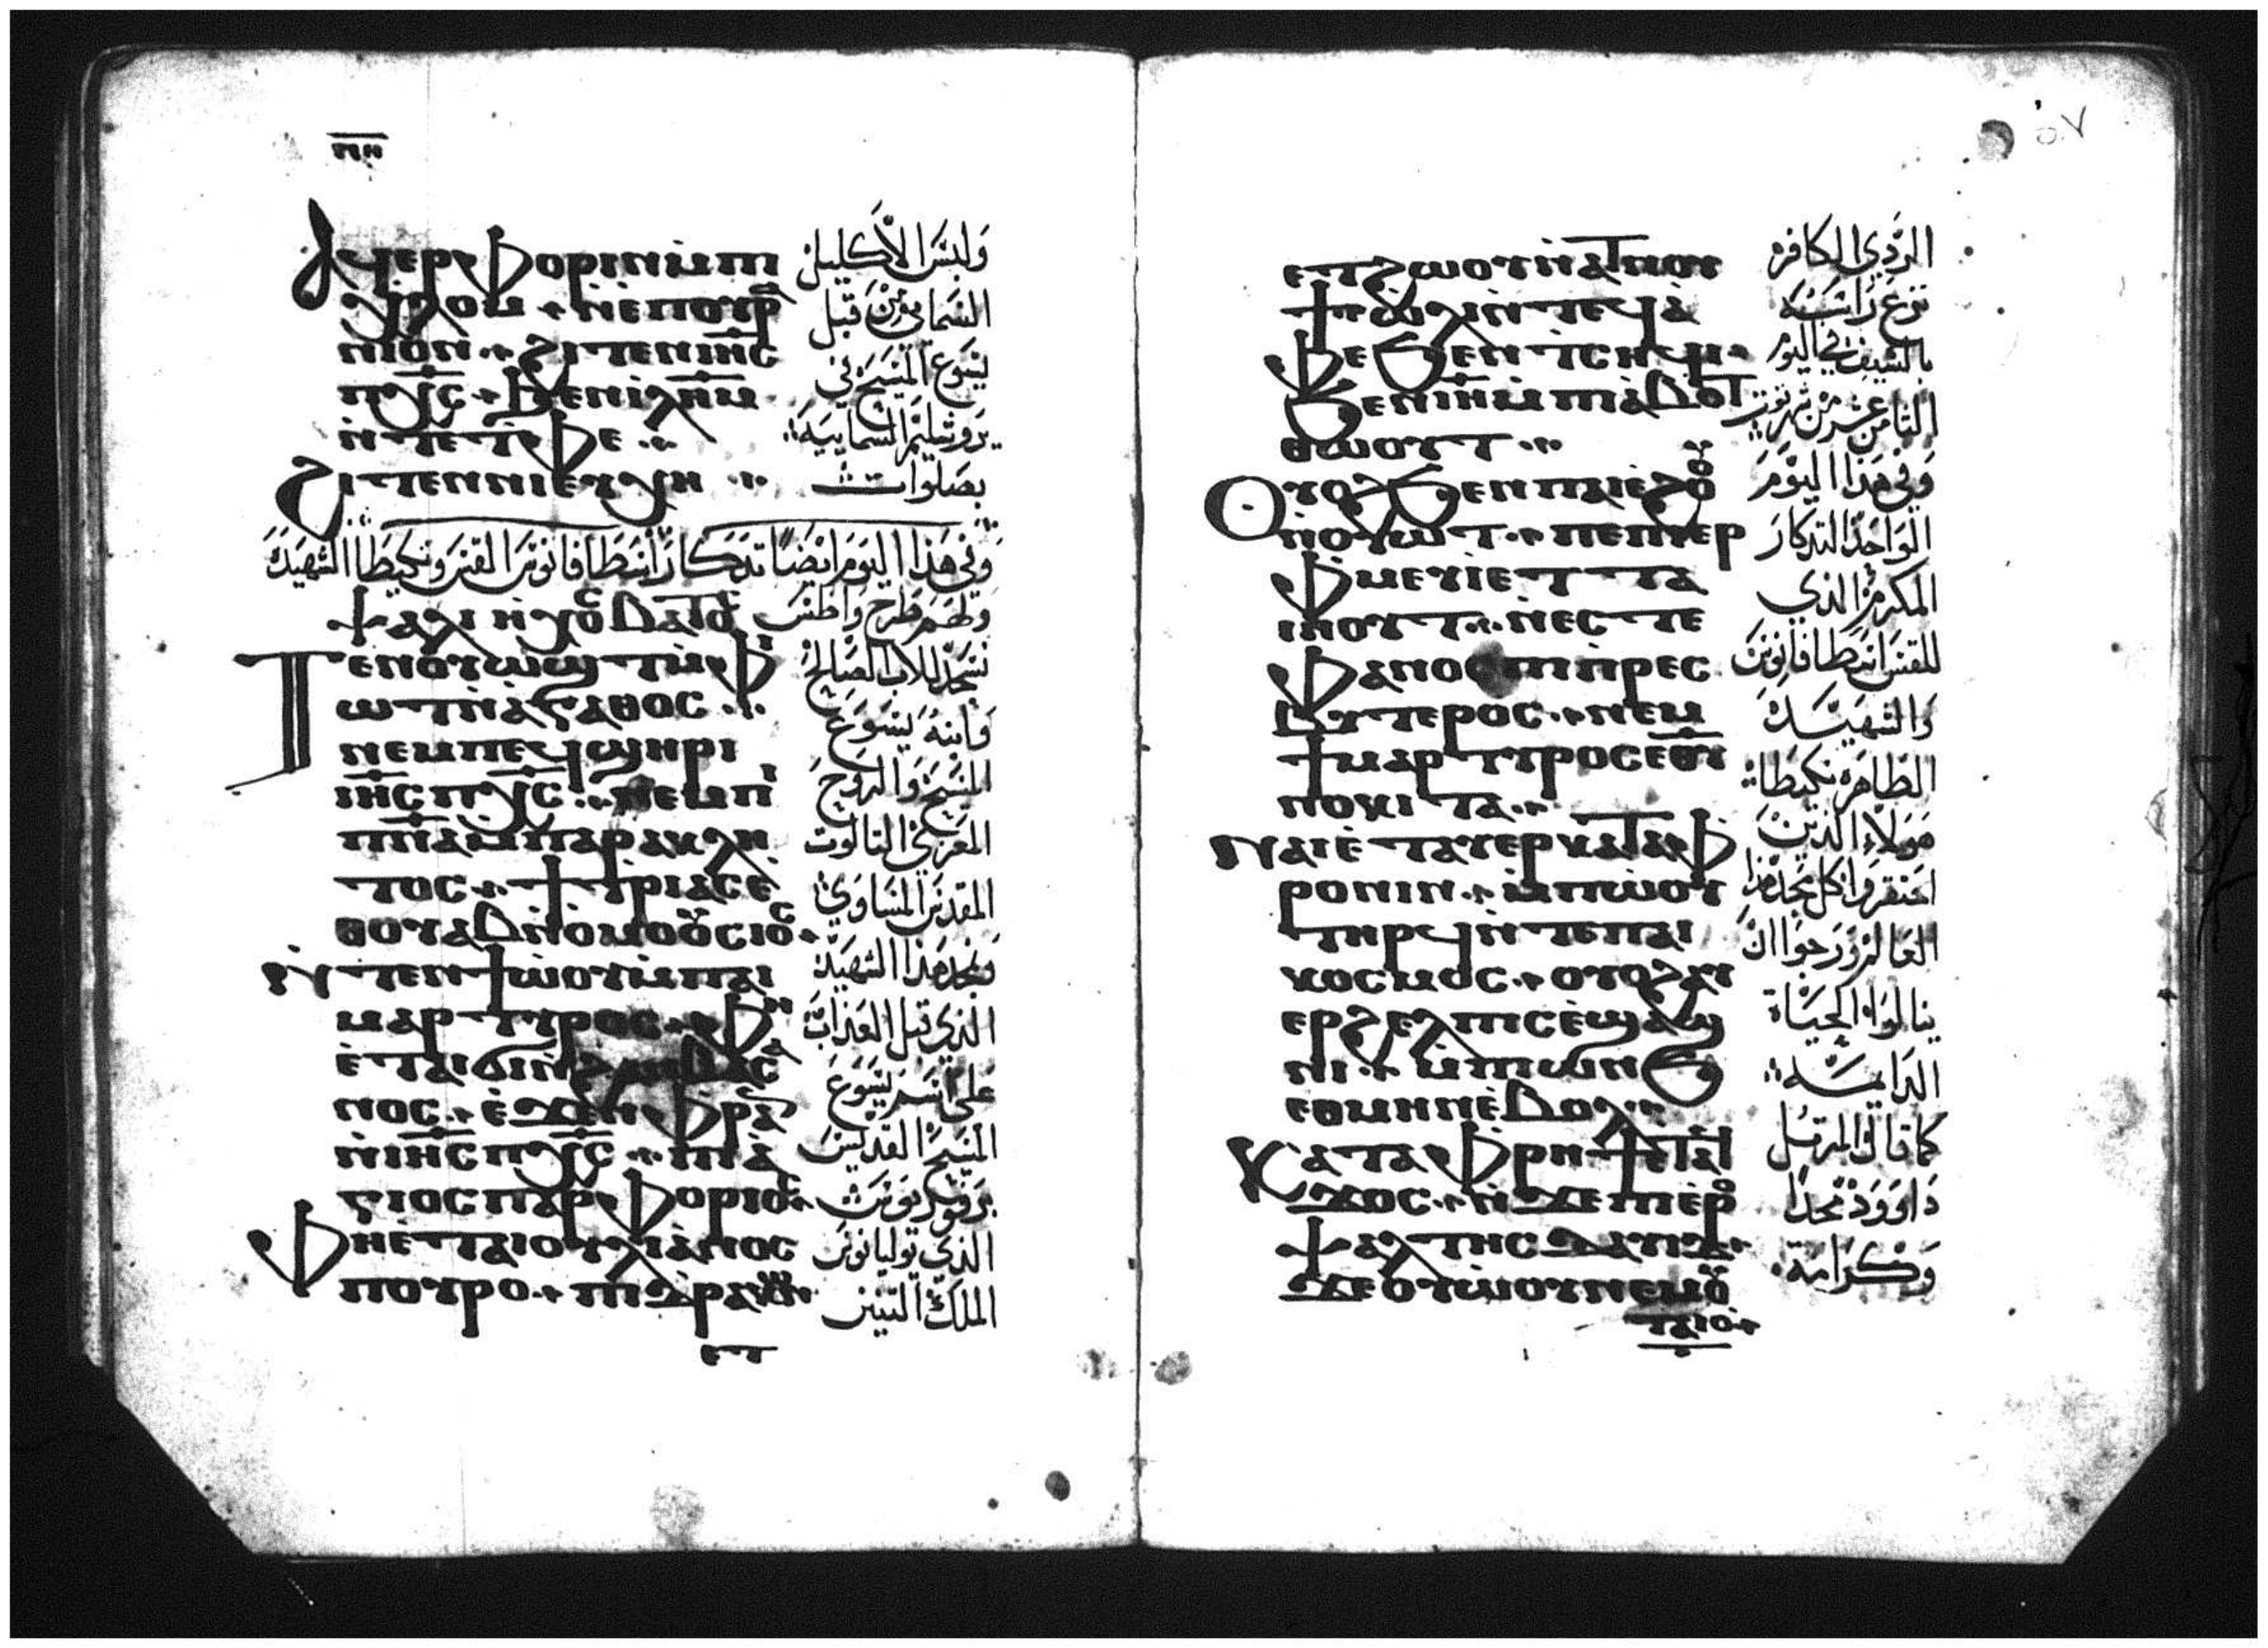 ⲡⲏ
Ⲁϥⲉⲣⲫⲟⲣⲓⲛ ⲙ̀ⲡⲓ
ⲭⲗⲟⲙ · ⲛⲉⲡⲟⲩⲣⲁ
ⲛⲓⲟⲛ · ϩⲓⲧⲉⲛ ⲓⲏ̅ⲥ̅
ⲡⲭ̅ⲥ̅ · ϧⲉⲛ ⲓ̀ⲗ̅ⲏ̅ⲙ̅
ⲛ̀ⲧⲉ ⲧⲫⲉ ·
ϩⲓⲧⲉⲛ ⲛⲓⲉⲩⲭⲏ ·
وَلبسَ الأكليل
السَماي مِنْ قبل
يَسُوع المَسيح في
يَروشليمَ السَماييَه
بصَلوات
وفي هَذا اليَوم ايضًا تدكار انسَطافانوس القس ونكيطا الشهيدَه
ولهم طرح واطس
Ⲧⲉⲛⲟⲩⲱϣⲧ ⲙ̀ⲫⲓ
ⲱⲧ ⲛ̀ⲁⲅⲁⲑⲟⲥ ·
ⲛⲉⲙ ⲡⲉϥϣⲏⲣⲓ
ⲓⲏ̅ⲥ̅ ⲡⲭ̅ⲥ̅ · ⲛⲉⲙ ⲡⲓ
ⲡⲛ̅ⲁ̅ ⲙ̀ⲡⲁⲣⲁⲕⲗⲏ
ⲧⲟⲥ · ϯⲧⲣⲓⲁⲥ ⲉ
ⲑⲟⲩⲁⲃ ⲛ̀ⲟⲙⲟⲟⲩⲥⲓⲟⲥ ·
Ⲛⲧⲉⲛϯⲱⲟⲩ ⲙ̀ⲡⲁⲓ
ⲙⲁⲣⲧⲩⲣⲟⲥ · ⲫⲏ
ⲉ̀ⲧⲁϥϭⲓ ⲛ̀ϩⲁⲛⲃⲁⲥⲁ
ⲛⲟⲥ · ⲉ̀ϫⲉⲛ ⲫⲣⲁ
ⲛ̀ⲓⲏ̅ⲥ̅ ⲡⲭ̅ⲥ̅ · ⲡⲓⲁ̀
ⲅⲓⲟⲥ ⲡⲁⲣⲫⲟⲣⲓⲟⲥ ·
Ⲫⲏⲉ̀ⲧⲁ ⲓⲟⲩⲗⲓⲁⲛⲟⲥ
ⲡⲟⲩⲣⲟ · ⲡⲓⲇⲣⲁⲕⲱⲛ
ⲉⲧ
نسَجد للاب الصَالح
وَابنه يَسُوع
المَسيح وَالروح
المعَزي الثالوت
المقدس المسَاوي
ونمجد هَذا الشهيد
الذي قبل العَذابات
على اسم يَسُوع
المَسيح القديس
برفوريوس
الذي يوليانوس
الملك التنين
٥٧
ⲉⲧϩⲱⲟⲩ ⲛ̀ⲁⲛⲟⲙ
ϯⲱⲗⲓ ⲛ̀ⲧⲉϥⲁ̀
ⲫⲉ ϧⲉⲛ ⲧⲥⲏϥⲓ ·
ϧⲉⲛ ⲓⲏ̅ ⲙ̀ⲡⲓⲁⲃⲟⲧ
ⲑⲱⲟⲩⲧ ·
Ⲟⲩⲟϩ ϧⲉⲛ ⲡⲁⲓⲉ̀ϩⲟⲟⲩ
ⲛ̀ⲟⲩⲱⲧ · ⲡⲉⲡⲓⲉⲣ
ⲫⲙⲉⲩⲓ̀ ⲉⲧⲧⲁ
ⲓⲏⲟⲩⲧ · ⲛⲉⲥⲧⲉ
ⲫⲁⲛⲟⲥ ⲡⲓⲡ̀ⲣⲉⲥ
ⲃⲩⲧⲉⲣⲟⲥ · ⲛⲉⲙ
ϯⲙⲁⲣⲧⲩⲣⲟⲥ ⲉⲑⲩ
ⲛⲟⲕⲓⲧⲁ ·
Ⲛⲁⲓ ⲉ̀ⲧⲁⲩⲉⲣⲕⲁⲧⲁⲫ
ⲣⲟⲛⲓⲛ · ⲙ̀ⲡⲱⲟⲩ
ⲧⲏⲣϥ ⲛ̀ⲧⲉ ⲡⲁⲓ
ⲕⲟⲥⲙⲟⲥ · ⲟⲩⲟϩ ⲁⲩ
ⲉⲣϩⲉⲗⲡⲓⲥ ⲉ̀ϣⲁϣ
ⲛⲓ · ⲙ̀ⲡⲓⲱⲛϧ
ⲉⲑⲙⲏⲛ ⲉ̀ⲃⲟⲗ ·
Ⲕⲁⲧⲁ ⲫⲣⲏϯ ⲉⲧⲁϥ
ϫⲟⲥ · ⲛ̀ϫⲉ ⲡⲓⲉⲣⲟ
ⲯⲁⲗⲧⲏⲥ ⲇⲁⲩⲓⲇ ·
ϫⲉ ⲟⲩⲱⲟⲩ ⲛⲉⲙ ⲟⲩ
ⲧⲁⲓⲟ ·
الرَدي الكافر
نزع رَاسَه
بالسَيف في اليوم
الثامن عشر من شهر توت
وَفي هَذا اليَوم
الوَاحد التدكار
المكرم الذي
للقس انسَطافانوس
وَالشهيدَه
الطَاهرَه نكيطا
هَولاء الذين
احتقروا كل مجد هذا
العَالم وَرجوا ان
ينالوا الحيَاة
الدَايمَه
كما قال المرتل
دَاوود مجدًا
وَكرَامَة